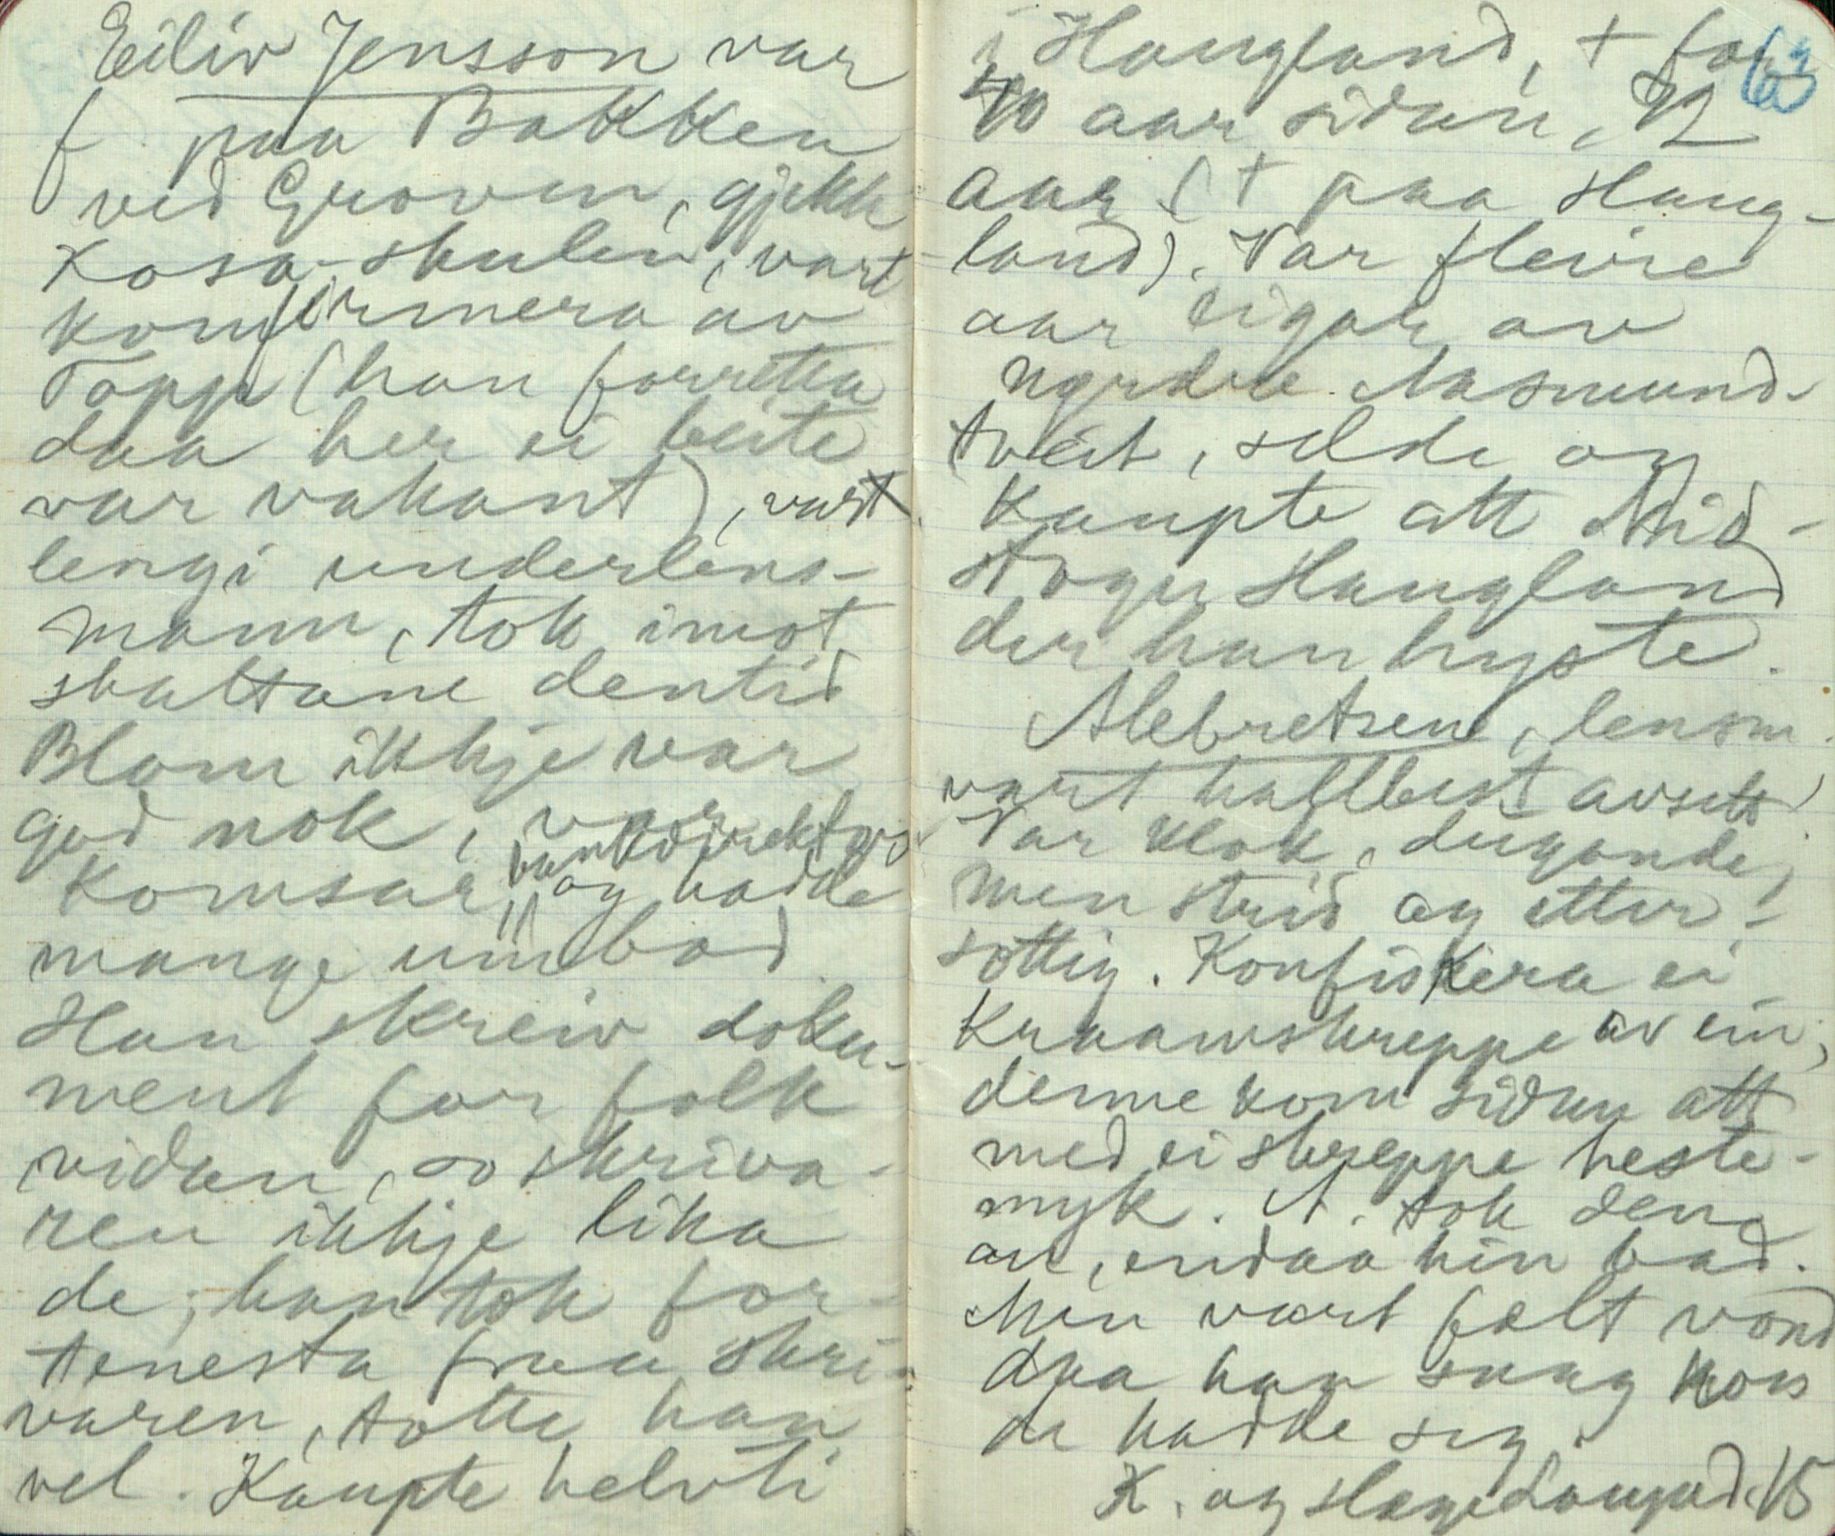 Eiliv Jensson var
f. paa Bakken
ved Groven, gjekk
Kosa-skulen, vart
konfirmera av
Topp (han forretta
daa her ei beite
var vakant), vart
lengi underlens-
mann, tok imot
skattane dentid
Blom ikkje var
god nok, var
Komsar, bankdirektør
og hadde
mange umbod.
Han skreiv doku-
ment for folk
vidan, so skriva-
ren ikkje lika
de; han tok for-
tenesta fraa skri-
varen, totte han
vel. Kaupte helvti
63
i Haugland, + for
40 aar sidan, 72
aar (+ paa Haug-
land). Var fleire
aar eigar av
nørdre Aasmund-
tveit, selde og
kaupte att Mid-
stogu Haugland
der han hyste.
Alebretsen, lensm.
vart halfbest avsett.
Var klok, dugande,
men strid og etter-
sottig. Konfiskera ei
kraamskreppe av ein,
denne kom sidan att
med ei skreppe heste-
myk. A. tok den
an, endaa hin bad.
Men vart fælt vond
daa han saag kors
de hadde seg.
K. og Hage Laugad. 15